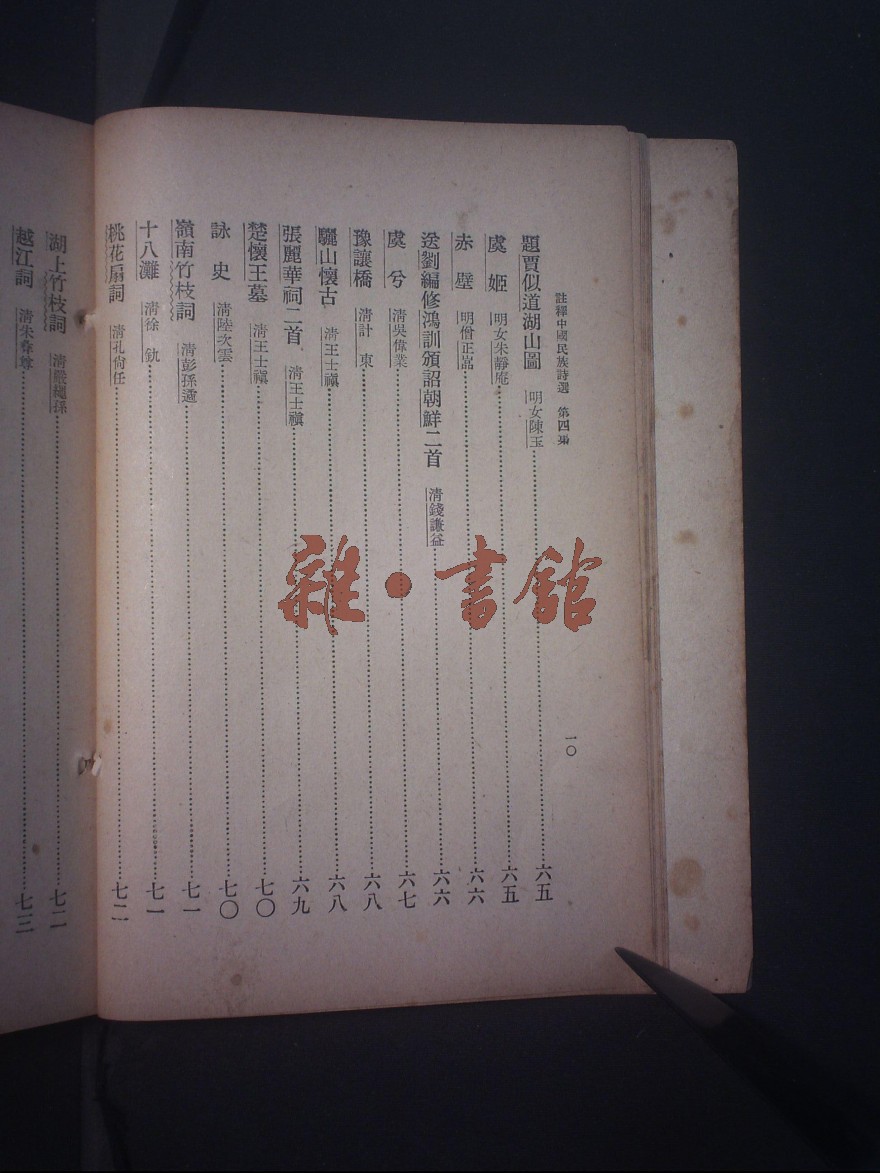 註釋中國民族詩選 第四編
一〇
題賈似道湖山圖 明女陳玉……六五
虞姬 明女朱靜庵……六五
赤壁 明僧正嵓……六六
送劉編修鴻訓頒詔朝鮮二首 清錢謙益……六六
虞兮 清吳偉業……六七
豫讓橋 清計東……六八
驪山懷古 清王士禛……六八
張麗華祠二首 清王士禛……六九
楚懷王墓 清王士禛……七〇
詠史 清陸次雲……七〇
嶺南竹枝詞 清彭孫遹……七一
十八灘 清徐釚……七一
桃花扇詞 清孔尙任……七二
湖上竹枝詞 清嚴繩孫……七二
越江詞 清朱彝尊……七三
雜·書館